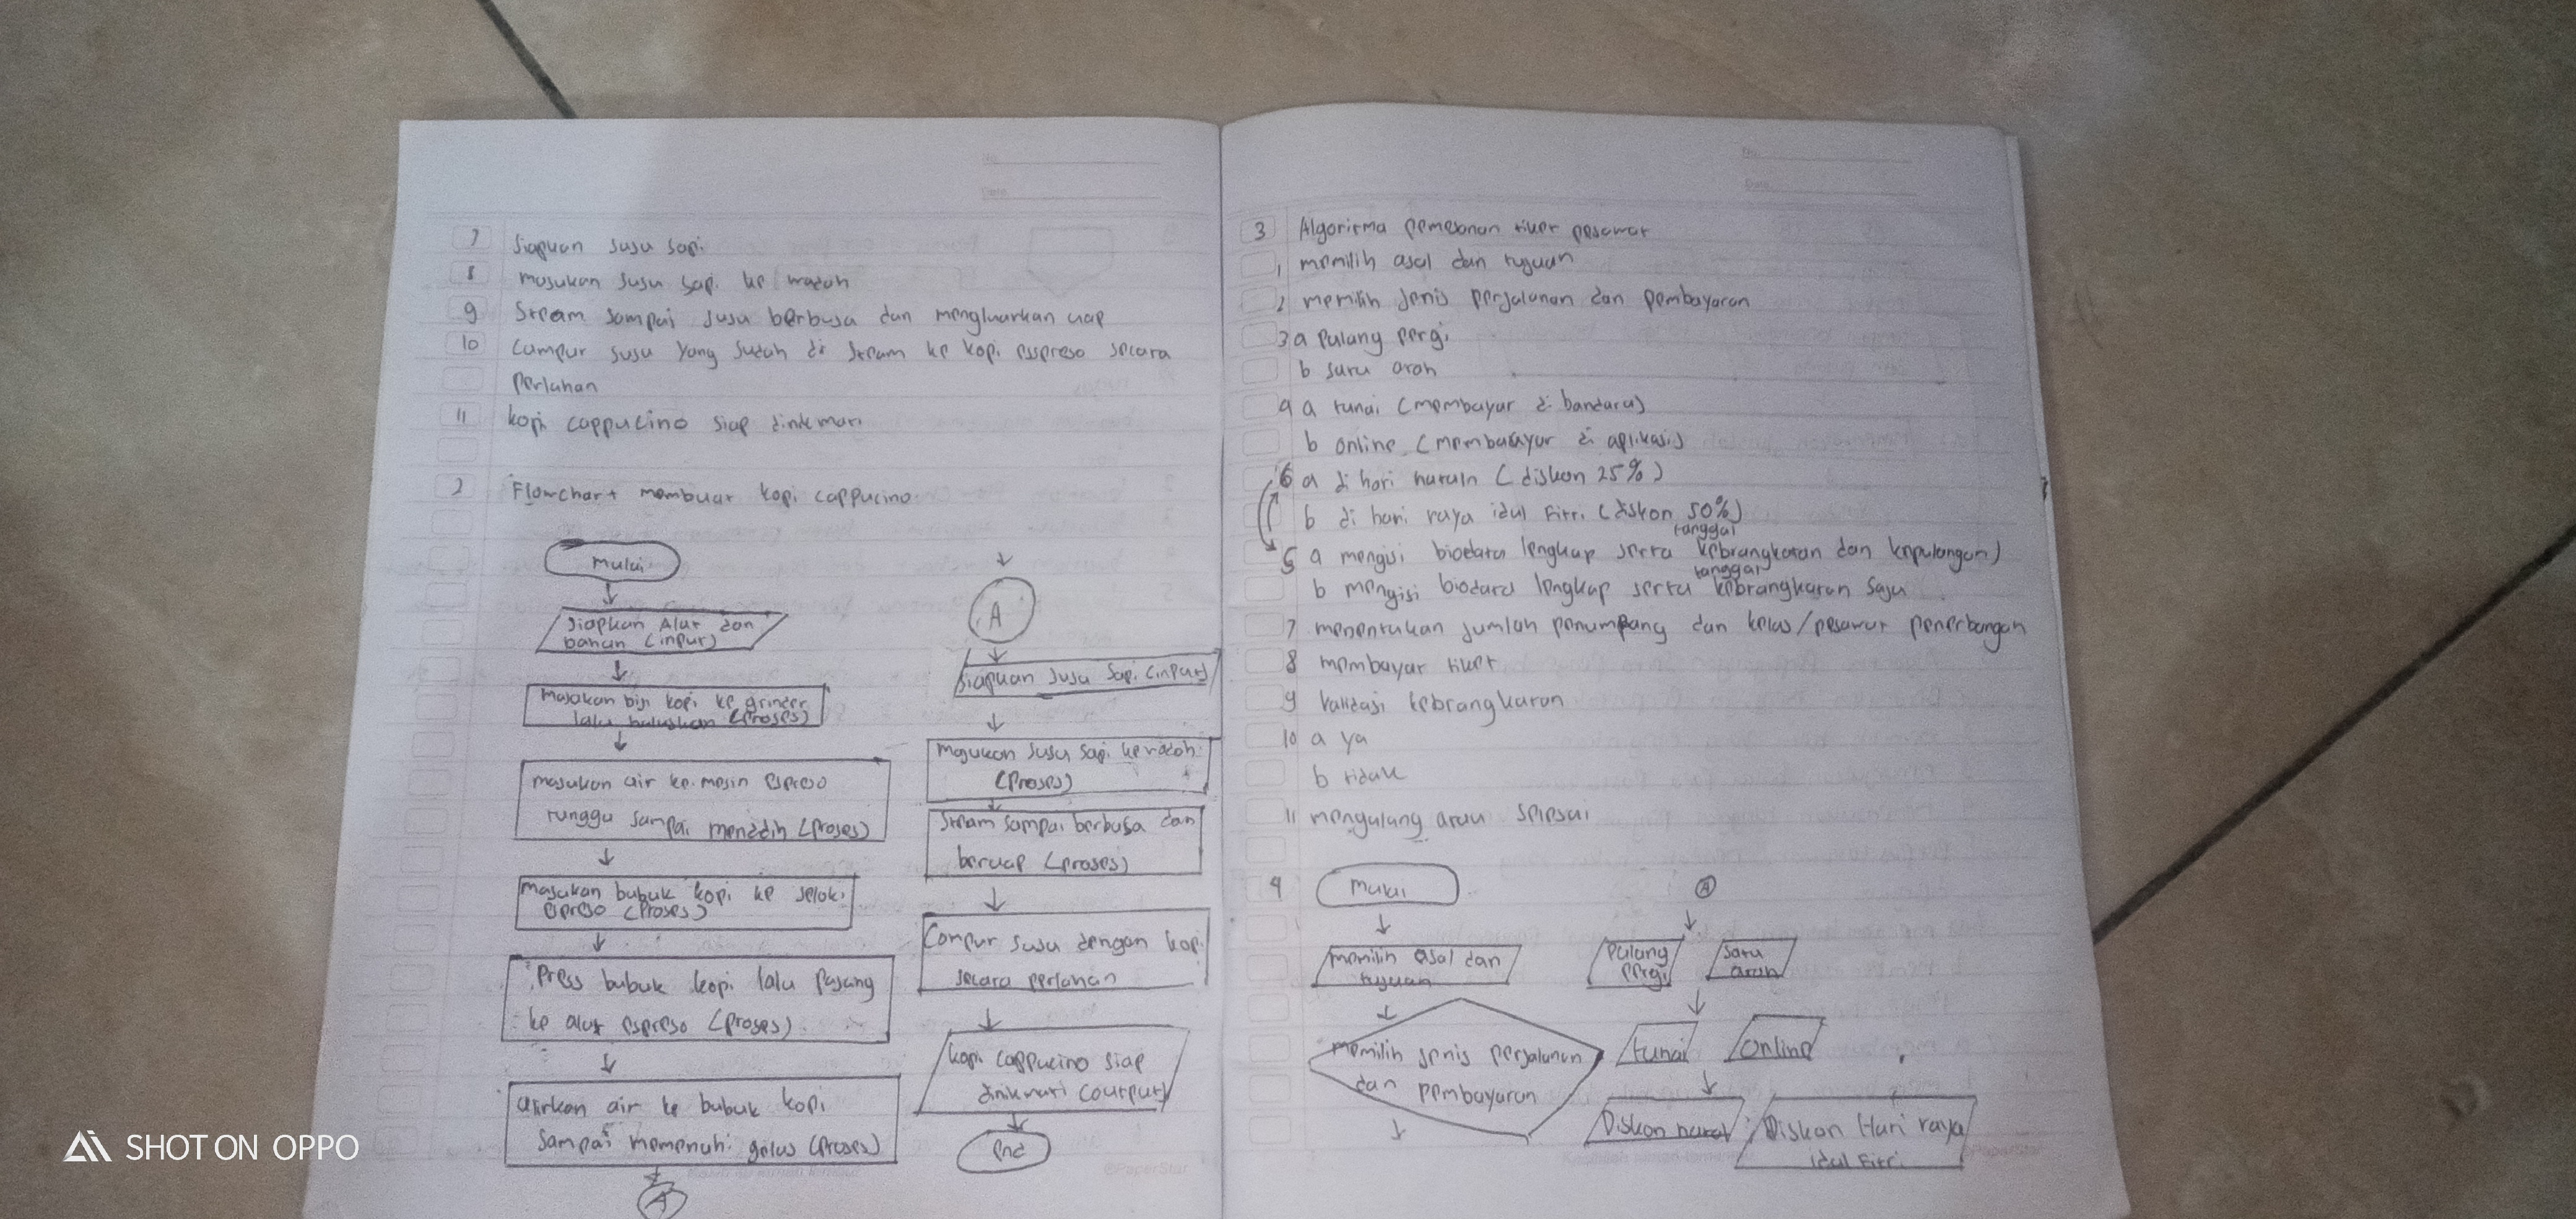 7 Siapkan susu sapi
8 masukan susu sapi ke wadah
9 Steam sampai susu berbusa dan mengluarkan uap
10 Campur susu yang sudah di steam ke kopi esspreso secara
perlahan
11 kopi cappucino siap dinikmati
2 Flowchart membuat kopi cappucino
Mulai
Siapkan Alat dan
bahan (input)
Masukan biji kopi ke grinder
lalu haluskan (Proses)
masukan air ke mesin Espreso
tunggu sampai mendidih (proses)
Masukan bubuk kopi ke seloki
Espreso (Proses)
Press bubuk kopi lalu pasang
ke alat espreso (proses)
alirkan air ke bubuk kopi
sampai memenuhi gelas (proses)
A
A
Siapkan susu sapi (input)
Masukan susu sapi ke wadah
(Proses)
Steam sampai berbusa dan
beruap (proses)
Campur susu dengan kopi
secara perlahan
kopi cappucino siap
dinikmati (output)
End
3 Algoritma pemesanan tiket pesawat
1 memilih asal dan tujuan
2 memilih jenis perjalanan dan pembayaran
3 a Pulang pergi
b satu arah
4 a tunai (membayar di bandara)
b online (membayar di aplikasi)
6 a di hari natain (diskon 25%)
b di hari raya idul Fitri (diskon 50%)
tanggal
5 a mengisi biodata lengkap serta kebrangkatan dan kepulangan)
tanggal
b mengisi biodata lengkap serta kebrangkatan saja
7 menentukan jumlah penumpang dan kelas/pesawat penerbangan
8 membayar tiket
9 Validasi kebrangkatan
10 a ya
b tidak
11 mengulang atau selesai
4 Mulai
memilih asal dan
tujuan
Memilih jenis perjalanan
dan pembayaran
A
Pulang
pergi
Satu
arah
tunai
Online
Diskon natal
Diskon Hari raya
idul Fitri
SHOT ON OPPO
@PaperStar